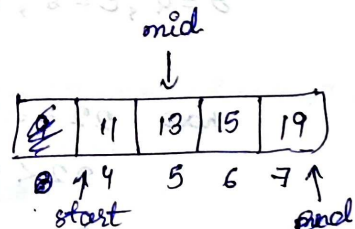 mid
11 13 15 19
4 5 6 7
start end